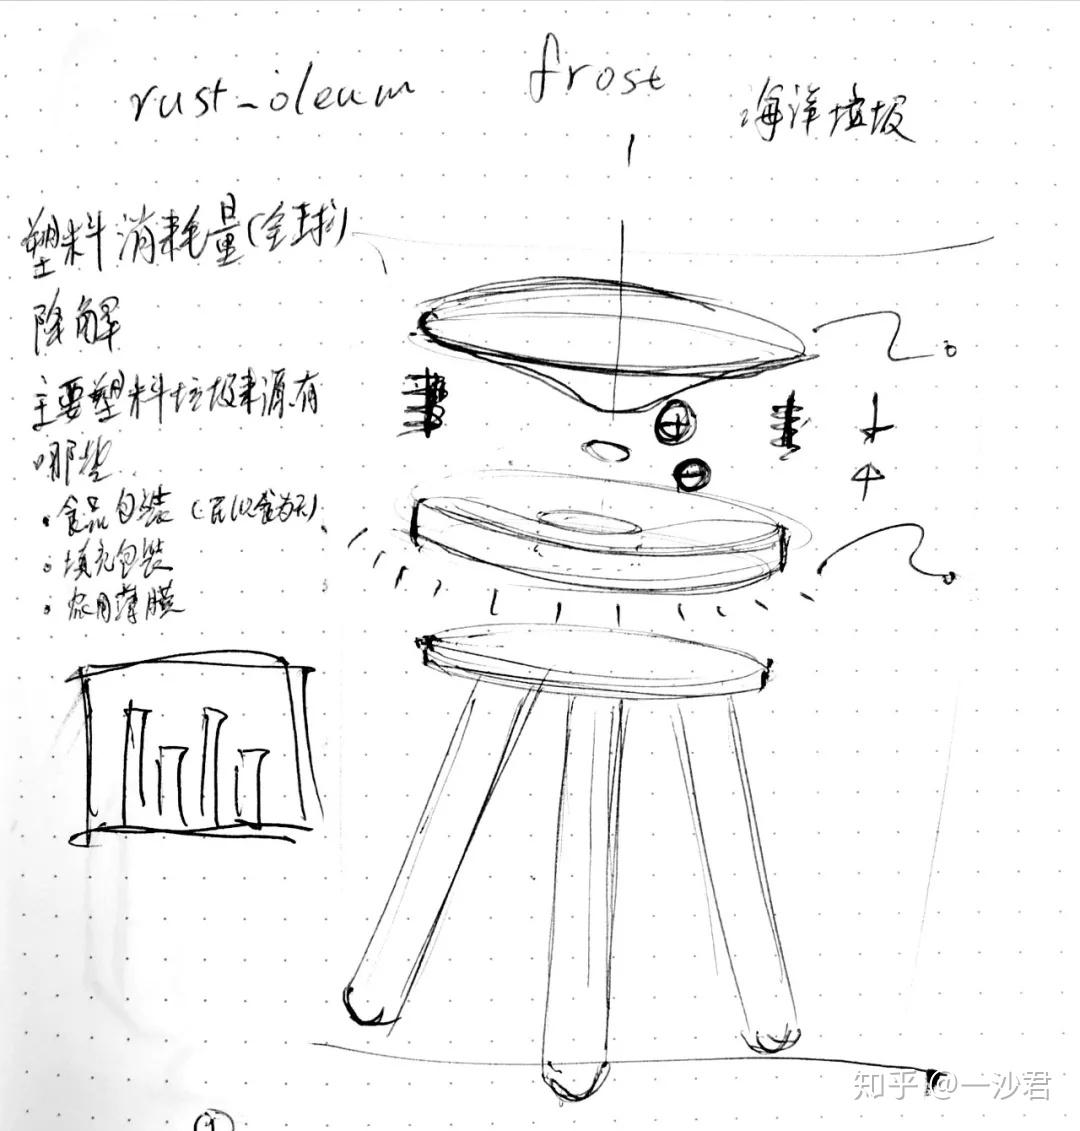 rust-oleum
frost
海洋垃圾
塑料消耗量(全球)
降解
主要塑料垃圾来源有
哪些
• 食品包装 (民以食为天)
• 填充包装
• 农用薄膜
1
知乎 @一沙君